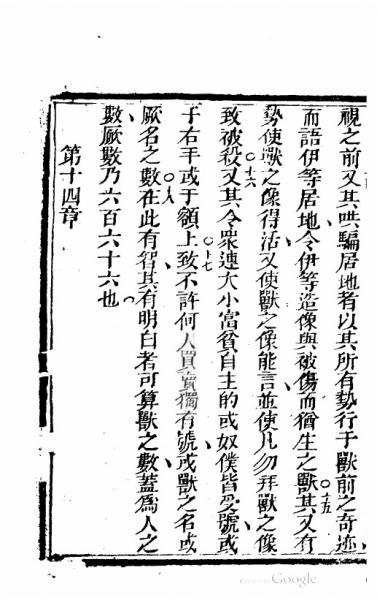 視之前又其哄騙居地者以其所有勢行于獸前之奇迹
而語伊等居地令伊等造像與被傷而猶生之獸其又有
十五
勢使獸之像得活又使獸之像能言並使凡勿拜獸之像
十六
致被殺又其令衆連大小富貧自主的或奴僕皆受號或
十七
于右手或于額上致不許何人買賣獨有號或獸之名或
十八
厥名之數在此有智其有明白者可算獸之數蓋爲人之
數厥數乃六百六十六也
第十四章
Google